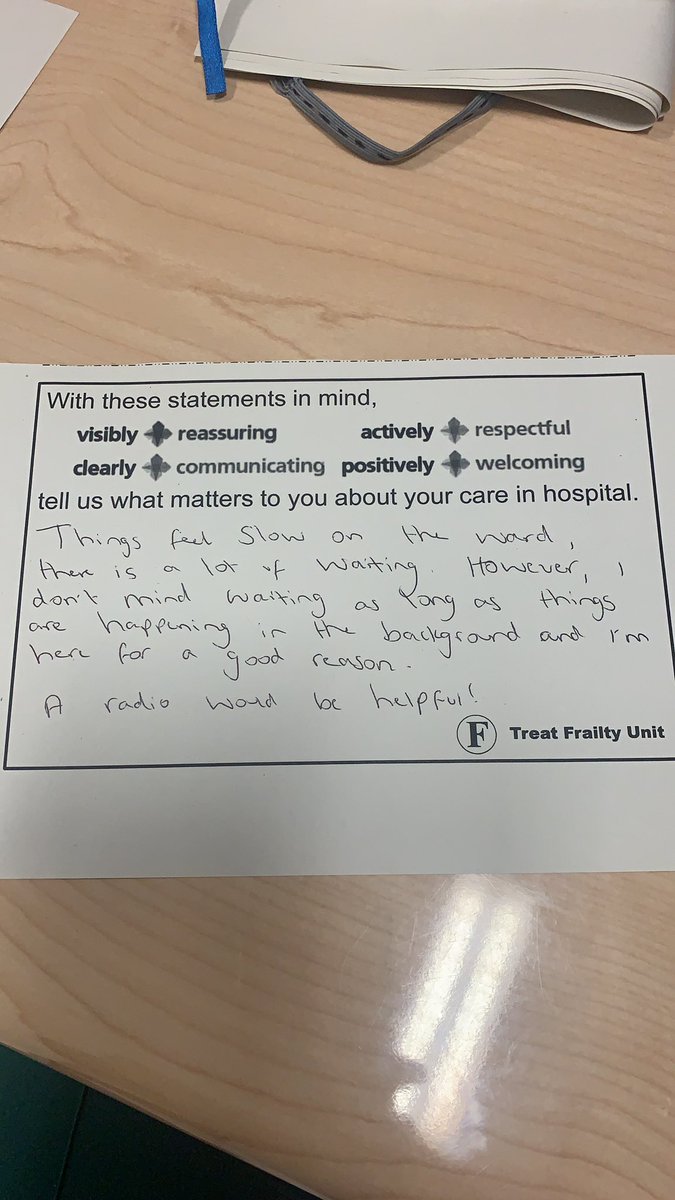 With these statements in mind,
visibly reassuring actively respectful
clearly communicating positively welcoming
tell us what matters to you about your care in hospital.
Things feel slow on the ward,
there is a lot of waiting. However, I
don't mind waiting as long as things
are happening in the background and I'm
here for a good reason.
A radio would be helpful!
F Treat Frailty Unit